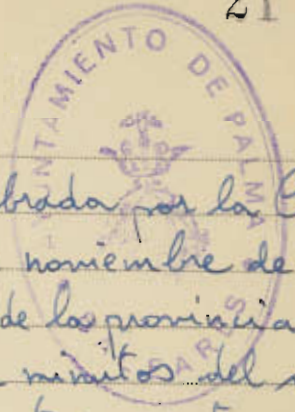 21
AYUNTAMIENTO DE PALMA
BALEARES
brada por la C
noviembre de
de la provincia
minutos del s